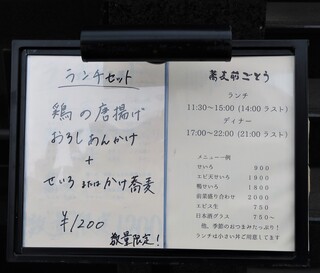 ランチセット
鶏の唐揚げ
おろしあんかけ
+
せいろ またはかけ蕎麦
¥1200
数量限定!
蕎麦前ごとう
ランチ
11:30~15:00 (14:00 ラスト)
ディナー
17:00~22:00 (21:00 ラスト)
メニュー一例
せいろ 900
エビ天せいろ 1900
鴨せいろ 1800
前菜盛り合わせ 2000
エビス生 750
日本酒グラス 750~
他、季節のおつまみたっぷり!
ランチは小さい丼ご用意してます